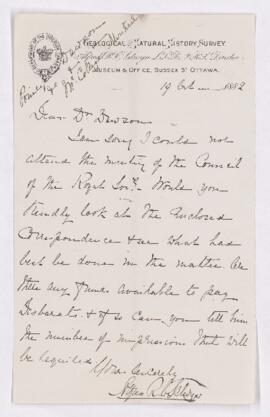 GEOLOGICAL & NATURAL HISTORY SURVEY
Alfred R. C. Selwyn L.L.D. F.R.S. Director
MUSEUM & OFFICE, SUSSEX St OTTAWA.
19 1882
Dear Dr Dawson
I am sorry I could not
attend the meeting of the Council
of the Royal Socy. Would you
kindly look at the Enclosed
Correspondence & see what had
best be done in the matter. Are
there any funds available to pay
& if so can you tell him
the number of impressions that will
be required
Yours sincerely
Alfred R. C. Selwyn